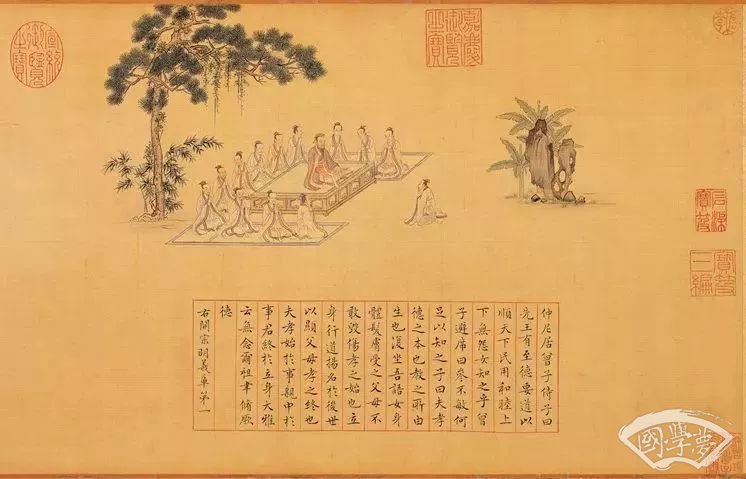 嘉慶御覽之寶
宣統御覽之寶
石渠寶笈
寶笈三編
仲尼居曾子侍子曰
先王有至德要道以
順天下民用和睦上
下無怨女知之乎曾
子避席曰參不敏何
足以知之子曰夫孝
德之本也教之所由
生也復坐吾語女身
體髮膚受之父母不
敢毀傷孝之始也立
身行道揚名於後世
以顯父母孝之終也
夫孝始於事親中於
事君終於立身大雅
云無念爾祖聿脩厥
德
右開宗明義章第一
國學夢